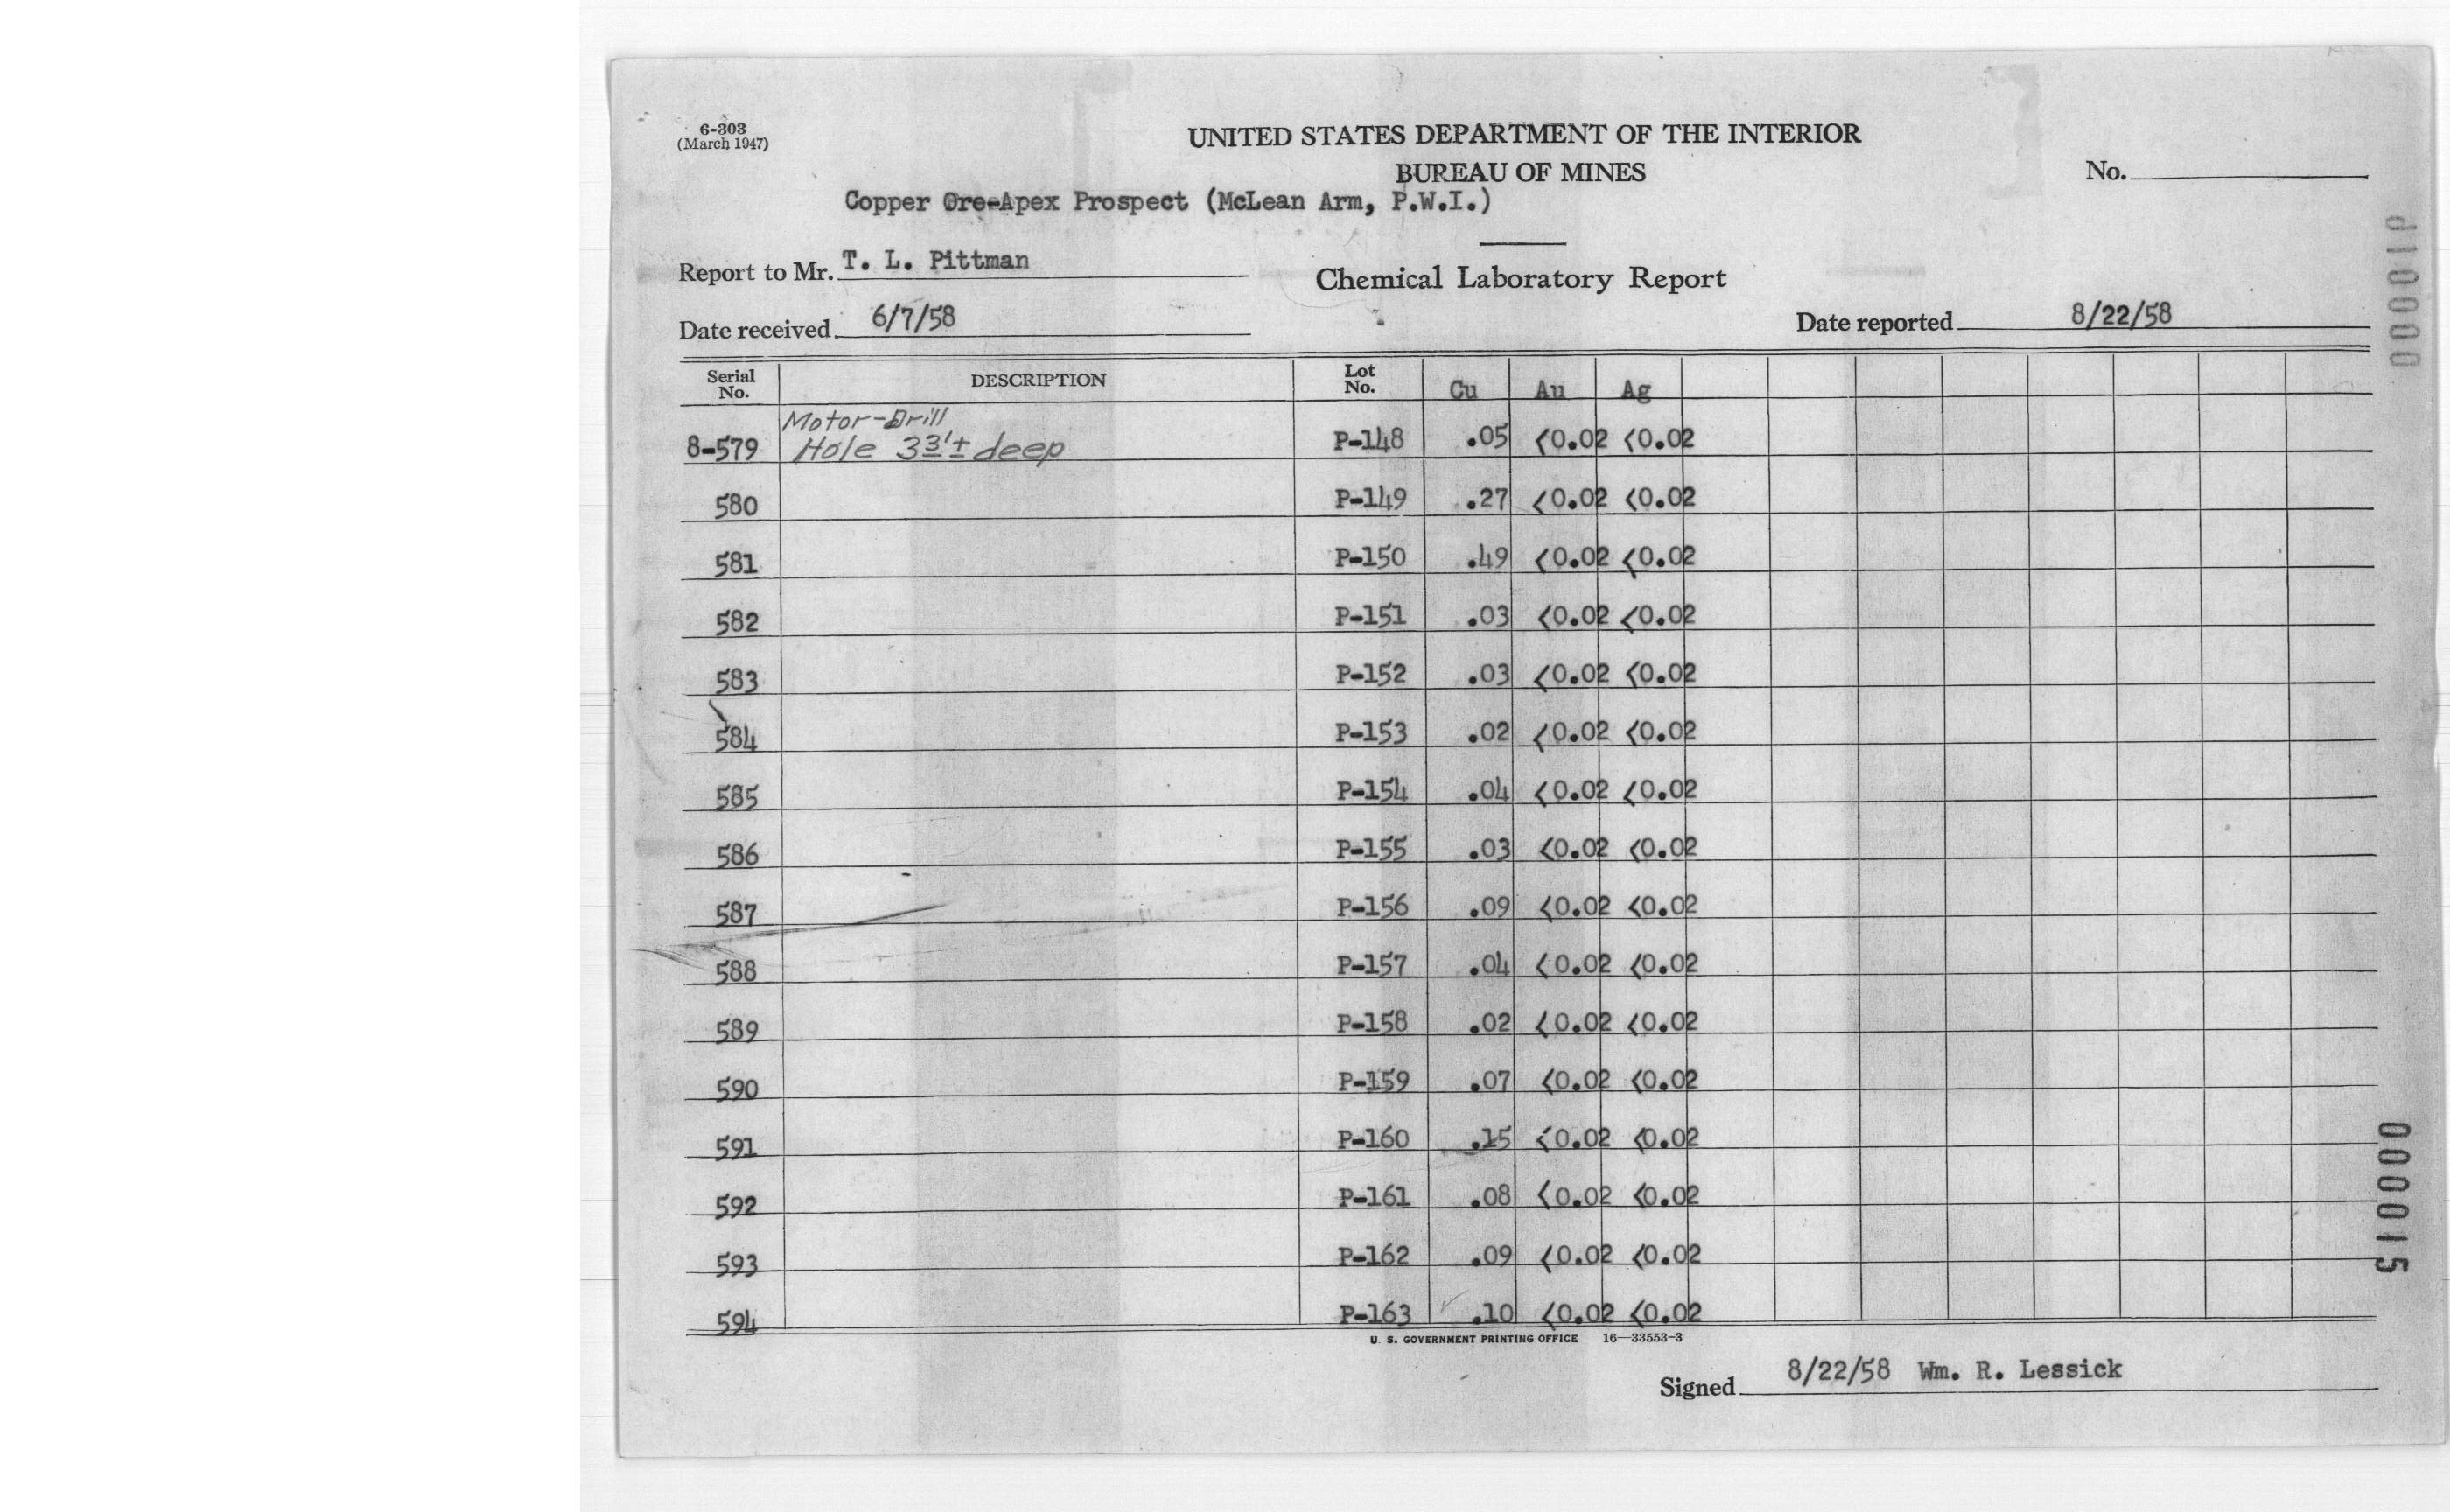 6-303
(March 1947)
UNITED STATES DEPARTMENT OF THE INTERIOR
BUREAU OF MINES
No.
Copper Ore-Apex Prospect (McLean Arm, P.W.I.)
Report to Mr. T. L. Pittman
Chemical Laboratory Report
Date received 6/7/58
Date reported 8/22/58
Serial No. DESCRIPTION Lot No. Cu Au Ag
Motor-Drill
8-579 Hole 33'± deep P-148 .05 <0.02 <0.02
580 P-149 .27 <0.02 <0.02
581 P-150 .49 <0.02 <0.02
582 P-151 .03 <0.02 <0.02
583 P-152 .03 <0.02 <0.02
584 P-153 .02 <0.02 <0.02
585 P-154 .04 <0.02 <0.02
586 P-155 .03 <0.02 <0.02
587 P-156 .09 <0.02 <0.02
588 P-157 .04 <0.02 <0.02
589 P-158 .02 <0.02 <0.02
590 P-159 .07 <0.02 <0.02
591 P-160 .15 <0.02 <0.02
592 P-161 .08 <0.02 <0.02
593 P-162 .09 <0.02 <0.02
594 P-163 .10 <0.02 <0.02
U. S. GOVERNMENT PRINTING OFFICE 16—33553-3
Signed 8/22/58 Wm. R. Lessick
000015